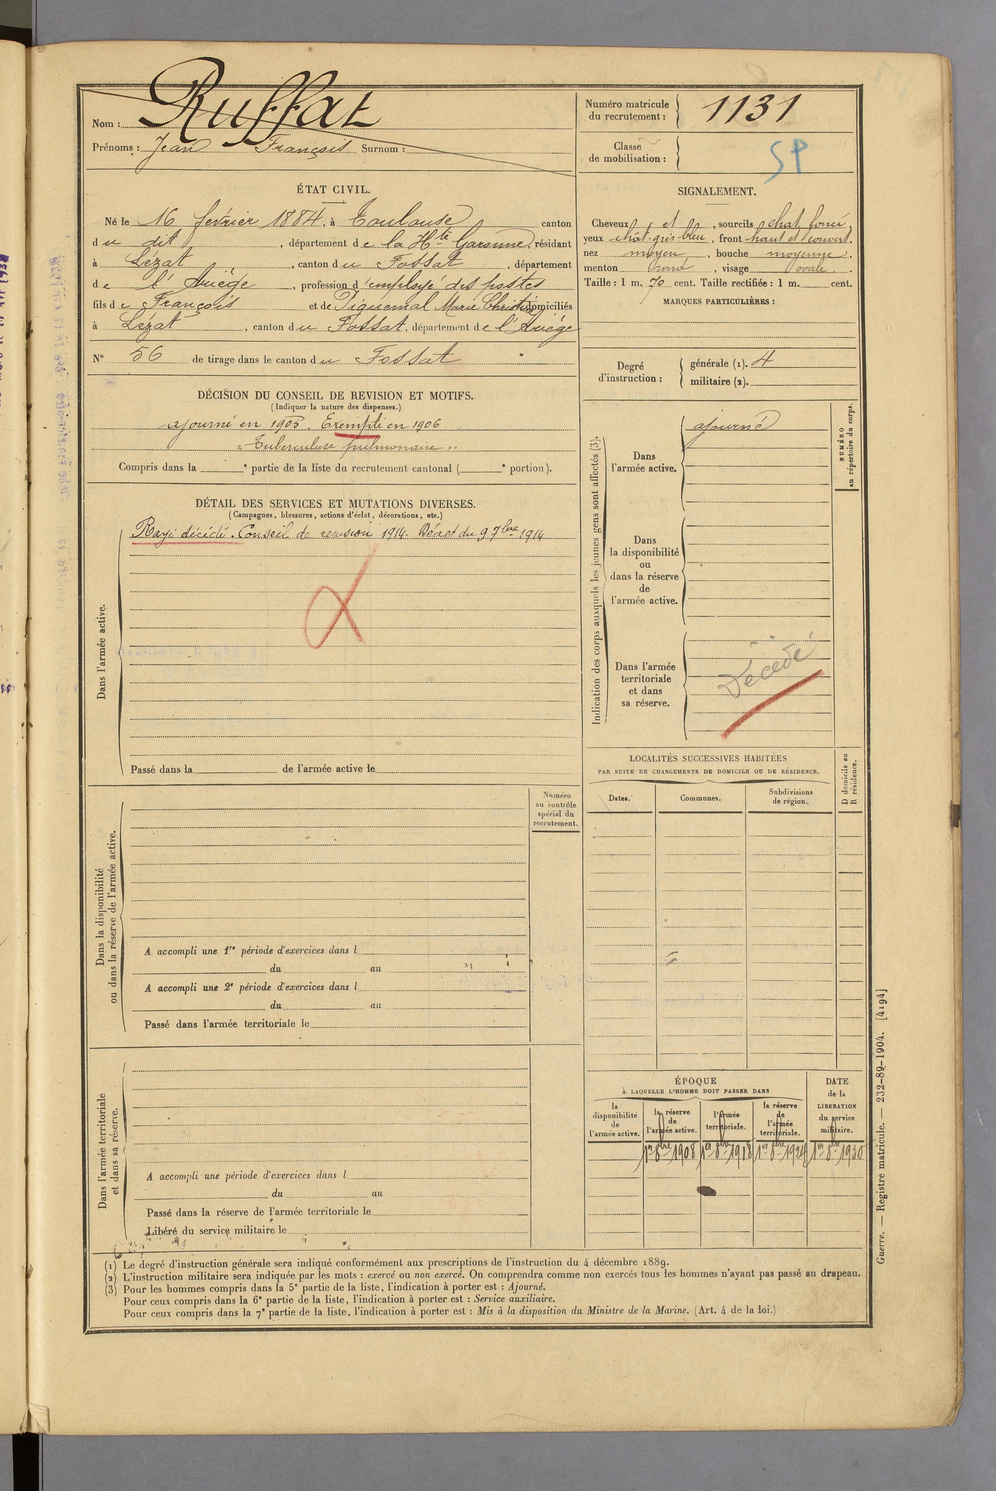 Nom : Ruffat
Prénoms : Jean François Surnom :
Numéro matricule du recrutement : 1131
Classe de mobilisation :
SP
ÉTAT CIVIL.
Né le 16 février 1884, à Toulouse canton
du dit, département de la Hte Garonne, résidant
à Lézat, canton du Fossat, département
de l'Ariège, profession d'employé des postes
fils de François et de Piquemal Marie Christine domiciliés
à Lézat, canton du Fossat, département de l'Ariège
N° 56 de tirage dans le canton du Fossat
SIGNALEMENT.
Cheveux et, sourcils chat. foncé,
yeux chât. gris bleu, front haut et couvert,
nez moyen, bouche moyenne,
menton rond, visage ovale.
Taille : 1 m. 70 cent. Taille rectifiée : 1 m. cent.
MARQUES PARTICULIÈRES :
Degré d'instruction : générale (1). 4
militaire (2).
DÉCISION DU CONSEIL DE REVISION ET MOTIFS.
(Indiquer la nature des dispenses.)
ajourné en 1905. Exempté en 1906
"Tuberculose pulmonaire"
Compris dans la e partie de la liste du recrutement cantonal ( e portion).
DÉTAIL DES SERVICES ET MUTATIONS DIVERSES.
(Campagnes, blessures, actions d'éclat, décorations, etc.)
Dans l'armée active.
Rayé décédé. Conseil de revision 1914. Décret du 9 7bre 1914
Passé dans la de l'armée active le
Indication des corps auxquels les jeunes gens sont affectés (3).
NUMÉRO au répertoire du corps.
Dans l'armée active.
ajourné
Dans la disponibilité ou dans la réserve de l'armée active.
Dans l'armée territoriale et dans sa réserve.
Décédé
LOCALITÉS SUCCESSIVES HABITÉES
PAR SUITE DE CHANGEMENTS DE DOMICILE OU DE RÉSIDENCE.
D domicile ou R résidence.
Dates. Communes. Subdivisions de région.
Dans la disponibilité ou dans la réserve de l'armée active.
Numéro au contrôle spécial du recrutement.
A accompli une 1re période d'exercices dans l
du au
A accompli une 2e période d'exercices dans l
du au
Passé dans l'armée territoriale le
Dans l'armée territoriale et dans sa réserve.
A accompli une période d'exercices dans l
du au
Passé dans la réserve de l'armée territoriale le
Libéré du service militaire le
ÉPOQUE
À LAQUELLE L'HOMME DOIT PASSER DANS
la disponibilité de l'armée active.
la réserve de l'armée active.
l'armée territoriale.
la réserve de l'armée territoriale.
DATE de la LIBÉRATION du service militaire.
1er 8bre 1908 1er 8bre 1918 1er 8bre 1924 1er 8bre 1930
(1) Le degré d'instruction générale sera indiqué conformément aux prescriptions de l'instruction du 4 décembre 1889.
(2) L'instruction militaire sera indiquée par les mots : exercé ou non exercé. On comprendra comme non exercés tous les hommes n'ayant pas passé au drapeau.
(3) Pour les hommes compris dans la 5e partie de la liste, l'indication à porter est : Ajourné.
Pour ceux compris dans la 6e partie de la liste, l'indication à porter est : Service auxiliaire.
Pour ceux compris dans la 7e partie de la liste, l'indication à porter est : Mis à la disposition du Ministre de la Marine. (Art. 4 de la loi.)
Guerre. — Registre matricule. — 232-89-1904. [4194]